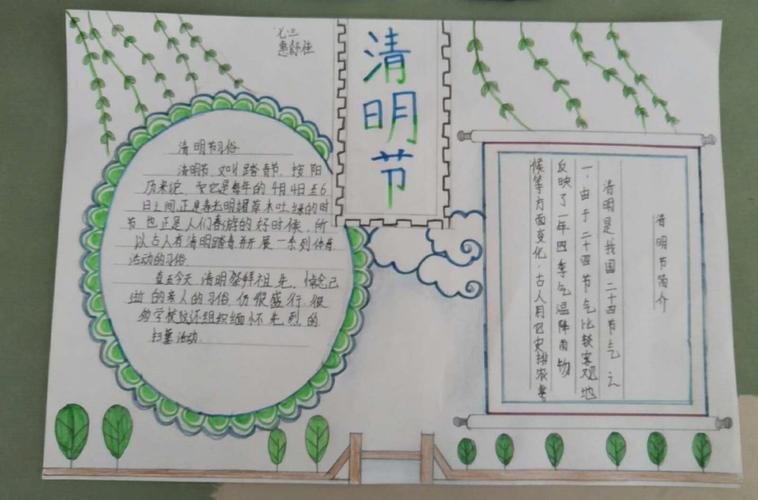 七二
清明节
清明节习俗
清明节,又叫踏青节,按阳
历来说,它是每年的4月4日至6
日之间,正是春光明媚草木吐绿的时
节,也正是人们春游的好时候,所
以古人有清明踏青并开展一系列体育
活动的习俗
直至今天,清明祭拜祖先,悼念已
逝的亲人的习俗仍很盛行,很
多学校还组织缅怀先烈的
扫墓活动
清明节简介
清明是我国二十四节气之
一.由于二十四节气比较客观地
反映了一年四季气温降雨物
候等方面变化.古人用它安排农事